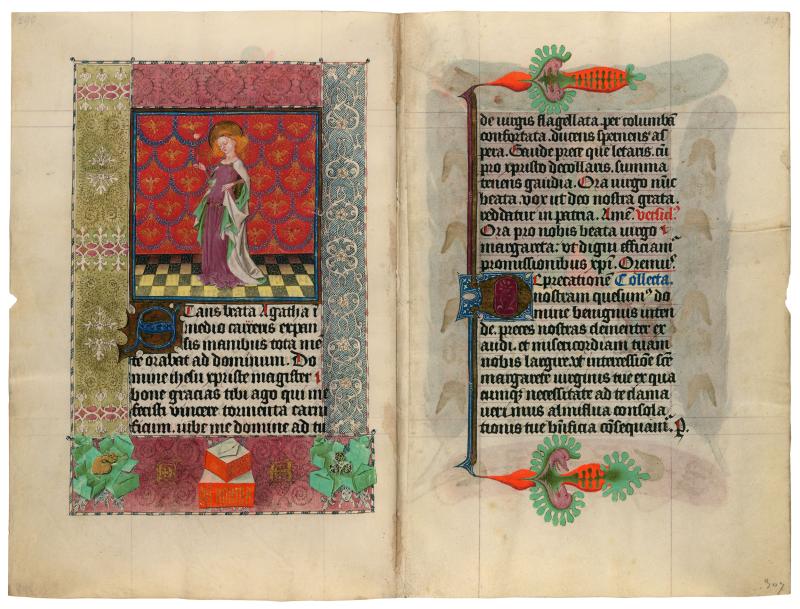 290
Stans beata Agatha i
medio carceris expan
sis manibus tota me
te orabat ad dominum. Do
mine ihesu xpriste magister
bone gracias tibi ago qui me
fecisti vincere tormenta carni
ficum. iube me domine ad tu
291
de virgis flagellata. per columbā
confortata. ducens spernens as
pera. Gaude prece que letaris. cū
pro xpristo decollaris. summa
tenens gaudia. Ora virgo nūc
beata. vox ut deo nostra grata.
reddatur in patria. Amē. versicl9
Ora pro nobis beata virgo
margareta: vt digni efficiam9
promissionibus xpi. Orem9.
Dprecationē Collecta.
nostram quesum9 do
mine benignus inten
de. preces nostras clementer ex
audi. et misericordiam tuam
nobis largire. vt intercessiōe scē
margarete virginis tue ex qua
cumq3 necessitate ad te clama
veri mus almiflua consola
tionis tue bn̄ficia cōsequam9. P.
307